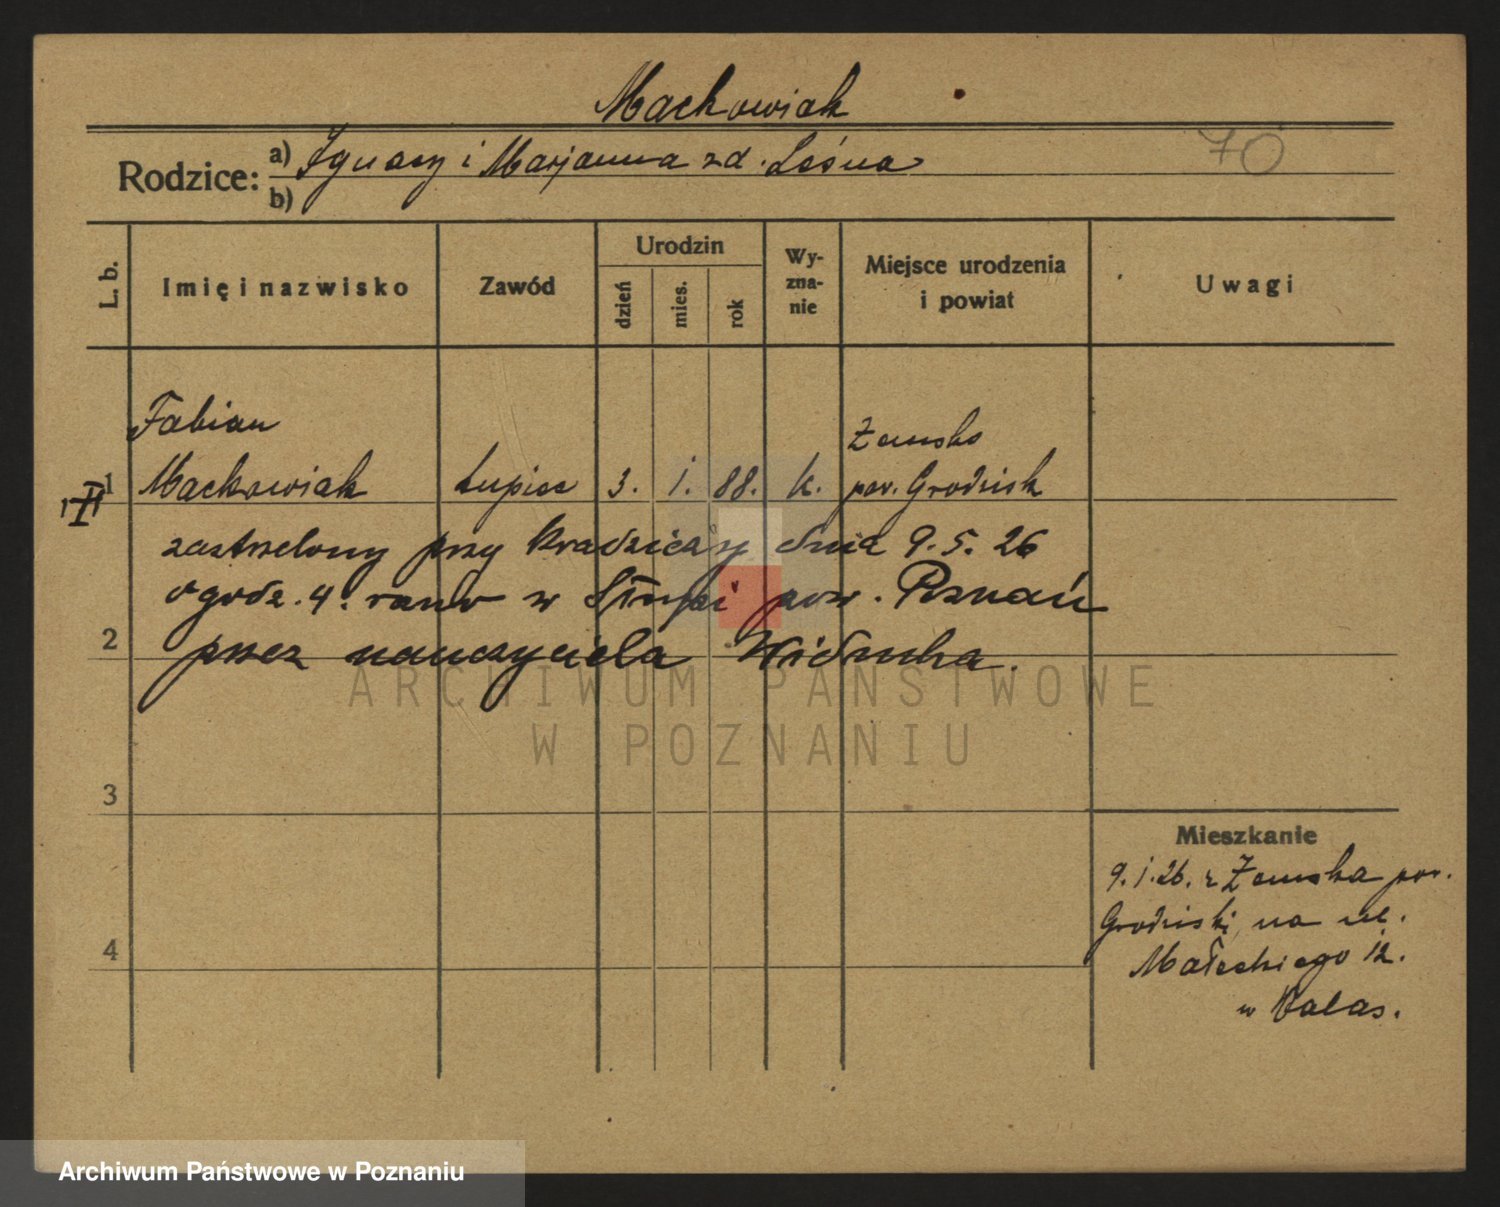 Mackowiak
70
Rodzice: a) Ignacy i Marjanna zd. Leśna
b)
L. b.
Imię i nazwisko
Zawód
Urodzin
dzień
mies.
rok
Wy-
zna-
nie
Miejsce urodzenia
i powiat
Uwagi
Fabian
Żemsko
1 Mackowiak kupiec 3. i. 88. k. pow. Grodzisk
zastrzelony przy kradzieży dnia 9. 5. 26
o godz. 4. rano w Słupi pow. Poznań
2
przez nauczyciela Widucha.
ARCHIWUM PAŃSTWOWE
W POZNANIU
3
Mieszkanie
9. i. 26. z Żemska pow.
Grodziski, na ul.
4
Małeckiego 12.
w
Archiwum Państwowe w Poznaniu